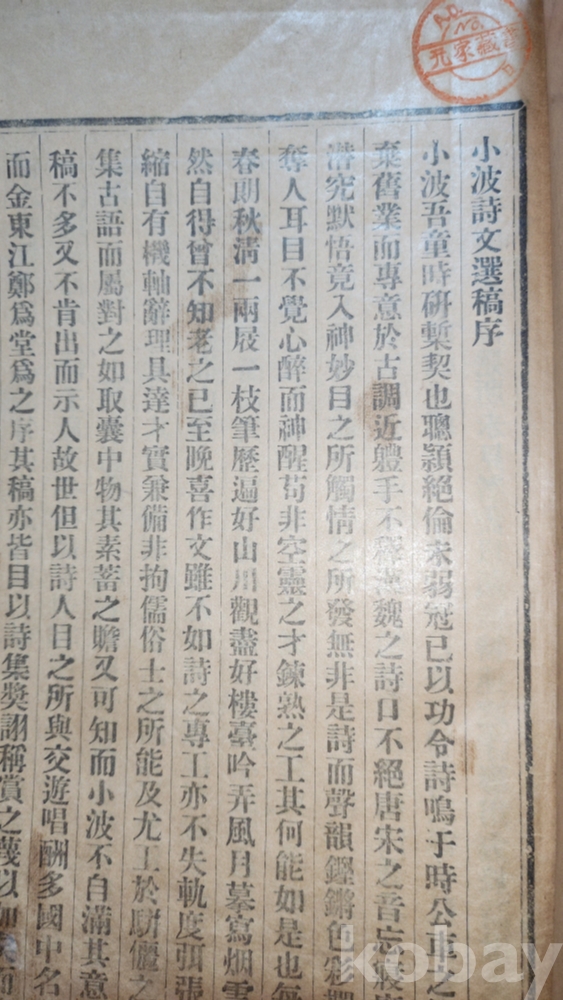 小波詩文選稿序
小波吾童時硏槧契也聰穎絕倫未弱冠已以功令詩鳴于時公車之
棄舊業而專意於古調近軆手不釋漢魏之詩口不絕唐宋之音忘寢
潜究默悟竟入神妙目之所觸情之所發無非是詩而聲韻鏗鏘色彩
奪人耳目不覺心醉而神醒苟非空靈之才鍊熟之工其何能如是也每
春朝秋淸一兩屐一枝筆歷遍好山川觀盡好樓臺吟弄風月摹寫烟雲
然自得曾不知老之已至晩喜作文雖不如詩之專工亦不失軌度弭張
縮自有機軸辭理具達才實兼備非拘儒俗士之所能及尤工於騈儷之
集古語而屬對之如取囊中物其素蓄之贍又可知而小波不自滿其意
稿不多又不肯出而示人故世但以詩人目之所與交遊唱酬多國中名
而金東江鄭爲堂爲之序其稿亦皆目以詩集獎詡稱賞之蔑以加
元家藏書
kobay